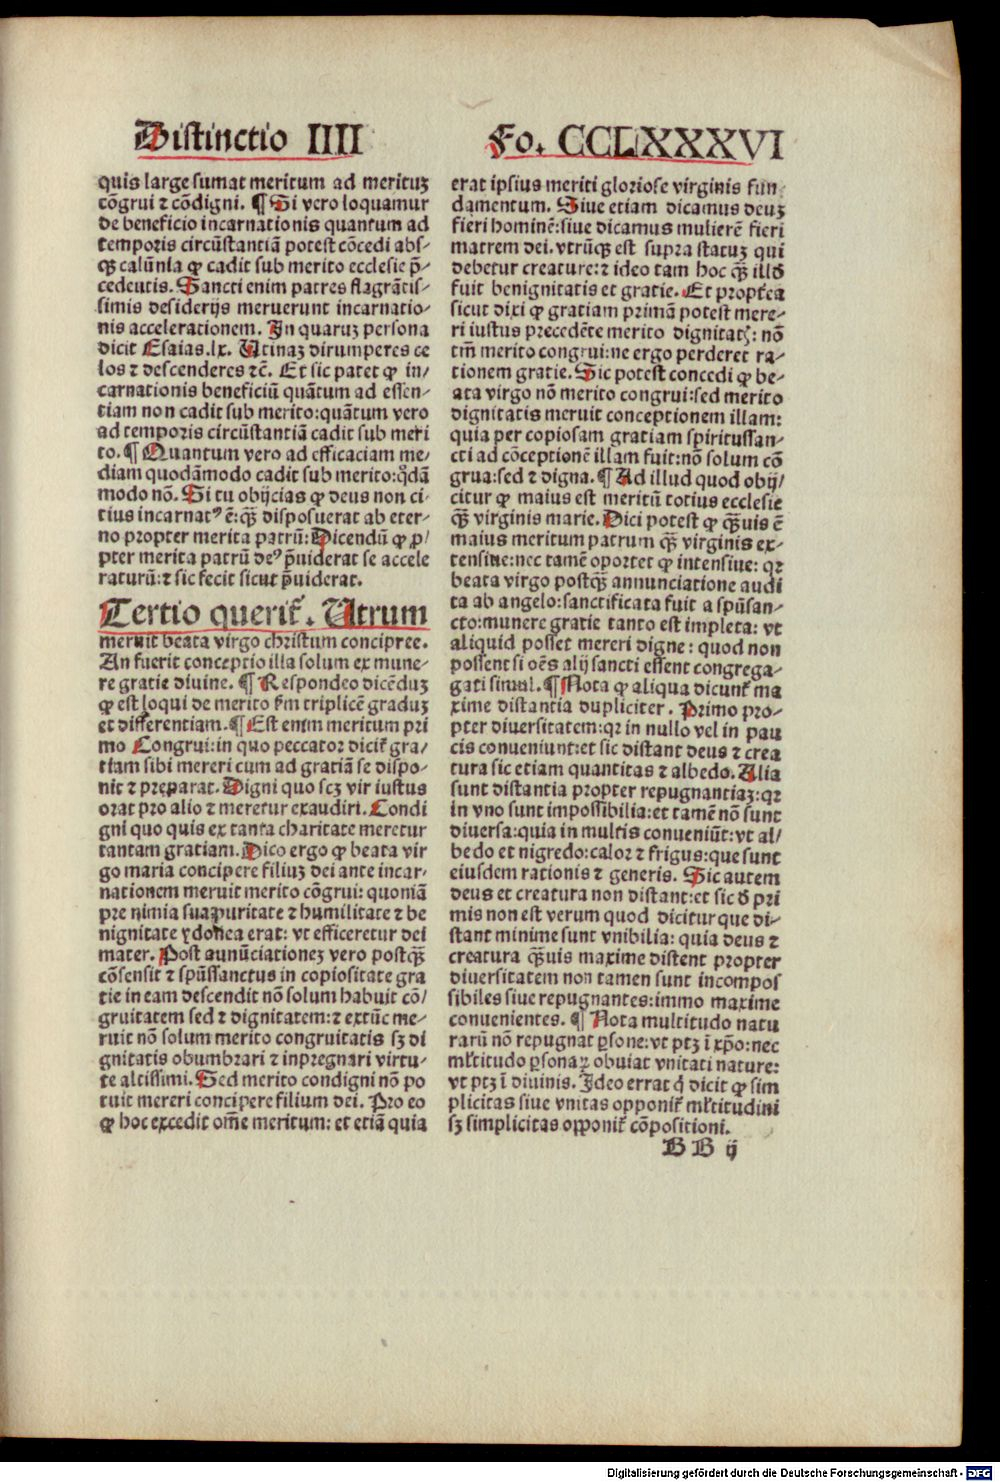 Distinctio IIII
Fo. CCLXXXXVI
quis large sumat meritum ad merituʒ
cōgrui ⁊ cōdigni. ¶ Si vero loquamur
de beneficio incarnationis quantum ad
temporis circūstantiā potest cōcedi abs-
qꝫ calūnia ꝙ cadit sub merito ecclesie p̄-
cedentis. Sancti enim patres flagrātis-
simis desiderijs meruerunt incarnatio-
nis accelerationem. In quaruʒ persona
dicit Esaias.lx. Utinaʒ dirumperes ce
los ⁊ descenderes ⁊c̄. Et sic patet ꝙ in/
carnationis beneficiū quātum ad essen-
tiam non cadit sub merito:quātum vero
ad temporis circūstantiā cadit sub meri
to. ¶ Quantum vero ad efficaciam me/
diam quodāmodo cadit sub merito:qͦdā
modo nō. Si tu obijcias ꝙ deus non ci-
tius incarnatꝰ ē:qꝫ̄ disposuerat ab eter-
no propter merita patrū: Dicendū ꝙ ꝓ/
pter merita patrū deꝰ p̄uiderat se accele
raturū:⁊ sic fecit sicut p̄uiderat.
Tertio querit᷑. Utrum
meruit beata virgo christum concipree.
An fuerit conceptio illa solum ex mune-
re gratie diuine. ¶ Respondeo dicēduʒ
ꝙ est loqui de merito ẜm triplicē graduʒ
et differentiam. ¶ Est enim meritum pri
mo Congrui:in quo peccator dicit᷑ gra/
tiam sibi mereri cum ad gratiā se dispo-
nit ⁊ preparat. Digni quo scʒ vir iustus
orat pro alio ⁊ meretur exaudiri. Condi
gni quo quis ex tanta charitate meretur
tantam gratiam. Dico ergo ꝙ beata vir
go maria concipere filiuʒ dei ante incar-
nationem meruit merito cōgrui: quoniā
pre nimia sua puritate ⁊ humilitate ⁊ be
nignitate ydonea erat: vt efficeretur dei
mater. Post annūciationeʒ vero postqꝫ̄
cōsensit ⁊ spūssanctus in copiositate gra
tie in eam descendit nō solum habuit cō/
gruitatem sed ⁊ dignitatem:⁊ extūc me-
ruit nō solum merito congruitatis sʒ di
gnitatis obumbrari ⁊ inpregnari virtu-
te altissimi. Sed merito condigni nō po
tuit mereri concipere filium dei. Pro eo
ꝙ hoc excedit om̄e meritum: et etiā quia
erat ipsius meriti gloriose virginis fun
damentum. Siue etiam dicamus deuʒ
fieri hominē:siue dicamus mulierē fieri
matrem dei. vtrūqꝫ est supra statuʒ qui
debetur creature:⁊ ideo tam hoc qꝫ̄ illđ
fuit benignitatis et gratie. Et propt̾ea
sicut dixi ꝙ gratiam primā potest mere-
ri iustus precedēte merito dignitatꝭ: nō
tm̄ merito congrui:ne ergo perderet ra-
tionem gratie. Sic potest concedi ꝙ be-
ata virgo nō merito congrui:sed merito
dignitatis meruit conceptionem illam:
quia per copiosam gratiam spiritussan-
cti ad cōceptionē illam fuit:nō solum cō
grua:sed ⁊ digna. ¶ Ad illud quod obij/
citur ꝙ maius est meritū totius ecclesie
qꝫ̄ virginis marie. Dici potest ꝙ qꝫ̄uis ē
maius meritum patrum qꝫ̄ virginis ex-
tensiue:nec tamē oportet ꝙ intensiue: qꝛ
beata virgo postqꝫ̄ annunciatione audi
ta ab angelo:sanctificata fuit a spūsan-
cto:munere gratie tanto est impleta: vt
aliquid posset mereri digne: quod non
possent si oēs alij sancti essent congrega-
gati simul. ¶ Nota ꝙ aliqua dicunt᷑ ma
xime distantia dupliciter. Primo pro-
pter diuersitatem:qꝛ in nullo vel in pau
cis conueniunt:et sic distant deus ⁊ crea
tura sic etiam quantitas ⁊ albedo. Alia
sunt distantia propter repugnantiaʒ:qꝛ
in vno sunt impossibilia:et tamē nō sunt
diuersa:quia in multis conueniūt:vt al/
bedo et nigredo:calor ⁊ frigus:que sunt
eiusdem rationis ⁊ generis. Sic autem
deus et creatura non distant:et sic đ pri
mis non est verum quod dicitur que di-
stant minime sunt vnibilia: quia deus ⁊
creatura qꝫ̄uis maxime distent propter
diuersitatem non tamen sunt incompos
sibiles siue repugnantes:immo maxime
conuenientes. ¶ Nota multitudo natu
rarū nō repugnat ꝑsone:vt ptʒ ī xp̄o:nec
ml̄titudo ꝑsonaꝝ obuiat vnitati nature:
vt ptʒ ī diuinis. Ideo errat q̇ dicit ꝙ sim
plicitas siue vnitas opponit᷑ ml̄titudini
sʒ simplicitas opponit᷑ cōpositioni.
BB ij
Digitalisierung gefördert durch die Deutsche Forschungsgemeinschaft - DFG